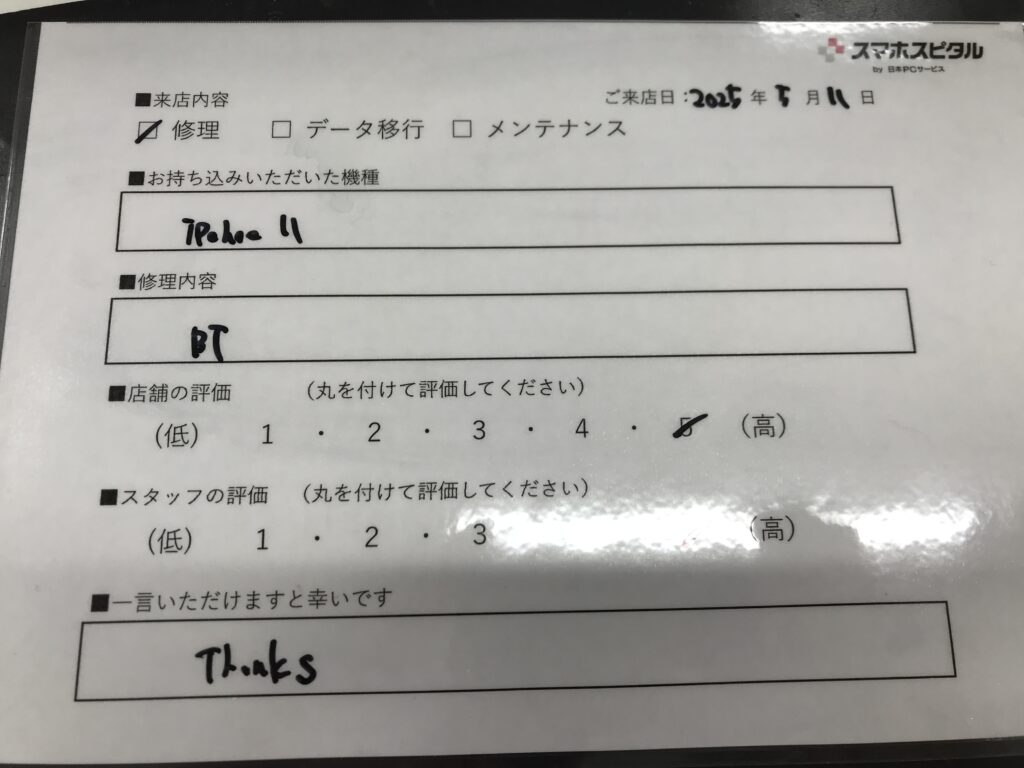 スマホスピタル
by 日本PCサービス
■来店内容
ご来店日：2025年5月11日
☑ 修理 □ データ移行 □ メンテナンス
■お持ち込みいただいた機種
iPohne 11
■修理内容
BT
■店舗の評価 （丸を付けて評価してください）
（低） 1 ・ 2 ・ 3 ・ 4 ・ 5 （高）
■スタッフの評価 （丸を付けて評価してください）
（低） 1 ・ 2 ・ 3 （高）
■一言いただけますと幸いです
Thanks